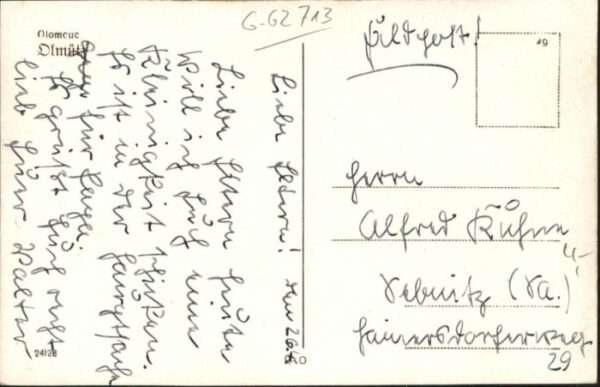 G-G2713
Olomouc
Olmütz
Feldpost!
49
Liebe Eltern! den 26.6.40
Liebe Eltern heute
will ich Euch eine
Kleinigkeit schicken.
Es ist in der Hauptsache
für Helga.
Es grüßt Euch recht
lieb Euer Walter
Herrn
Alfred Kühne
Sebnitz (Sa.)
Hainersdorferweg
29
24128